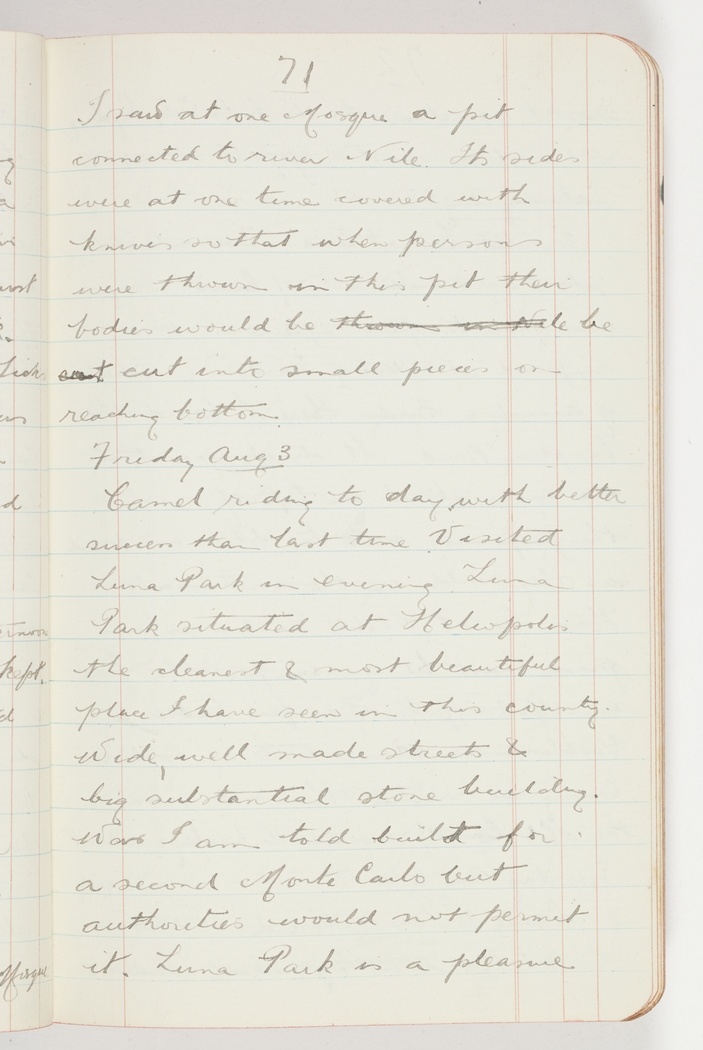 71
I said at one Mosque a pit
connected to river Nile. Its sides
were at one time covered with
knives so that when persons
were thrown in this pit their
bodies would be thrown in Nile be
cut into small pieces on
reaching bottom.
Friday Aug 3
Camel riding to day with better
success than last time. Visited
Luna Park in evening. Luna
Park situated at Heliopolis
the cleanest & most beautiful
place I have seen in this county.
Wide, well made streets &
big substantial stone building.
Was I am told built for
a second Monte Carlo but
authorities would not permit
it. Luna Park is a pleasure